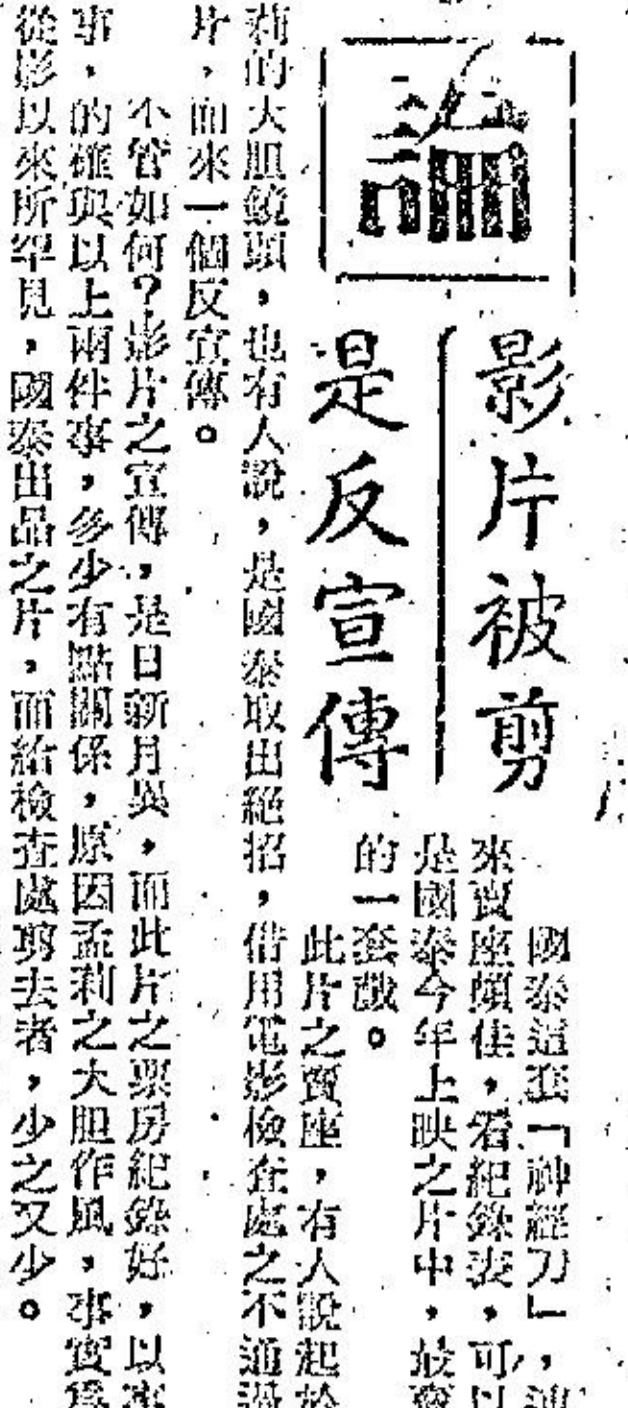 論
影片被剪
是反宣傳
國泰這套「神經刀」，
來賣座頗佳，看紀錄表，可以
是國泰今年上映之片中，最賣
的一套戲。
此片之賣座，有人說起於
莉的大胆鏡頭，也有人說，是國泰取出絕招，借用電影檢查處之不通過
片，而來一個反宣傳。
不管如何？影片之宣傳，是日新月異，而此片之票房紀錄好，以事
事，的確與以上兩件事，多少有點關係，原因孟莉之大胆作風，事實爲
從影以來所罕見，國泰出品之片，而給檢查處剪去者，少之又少。